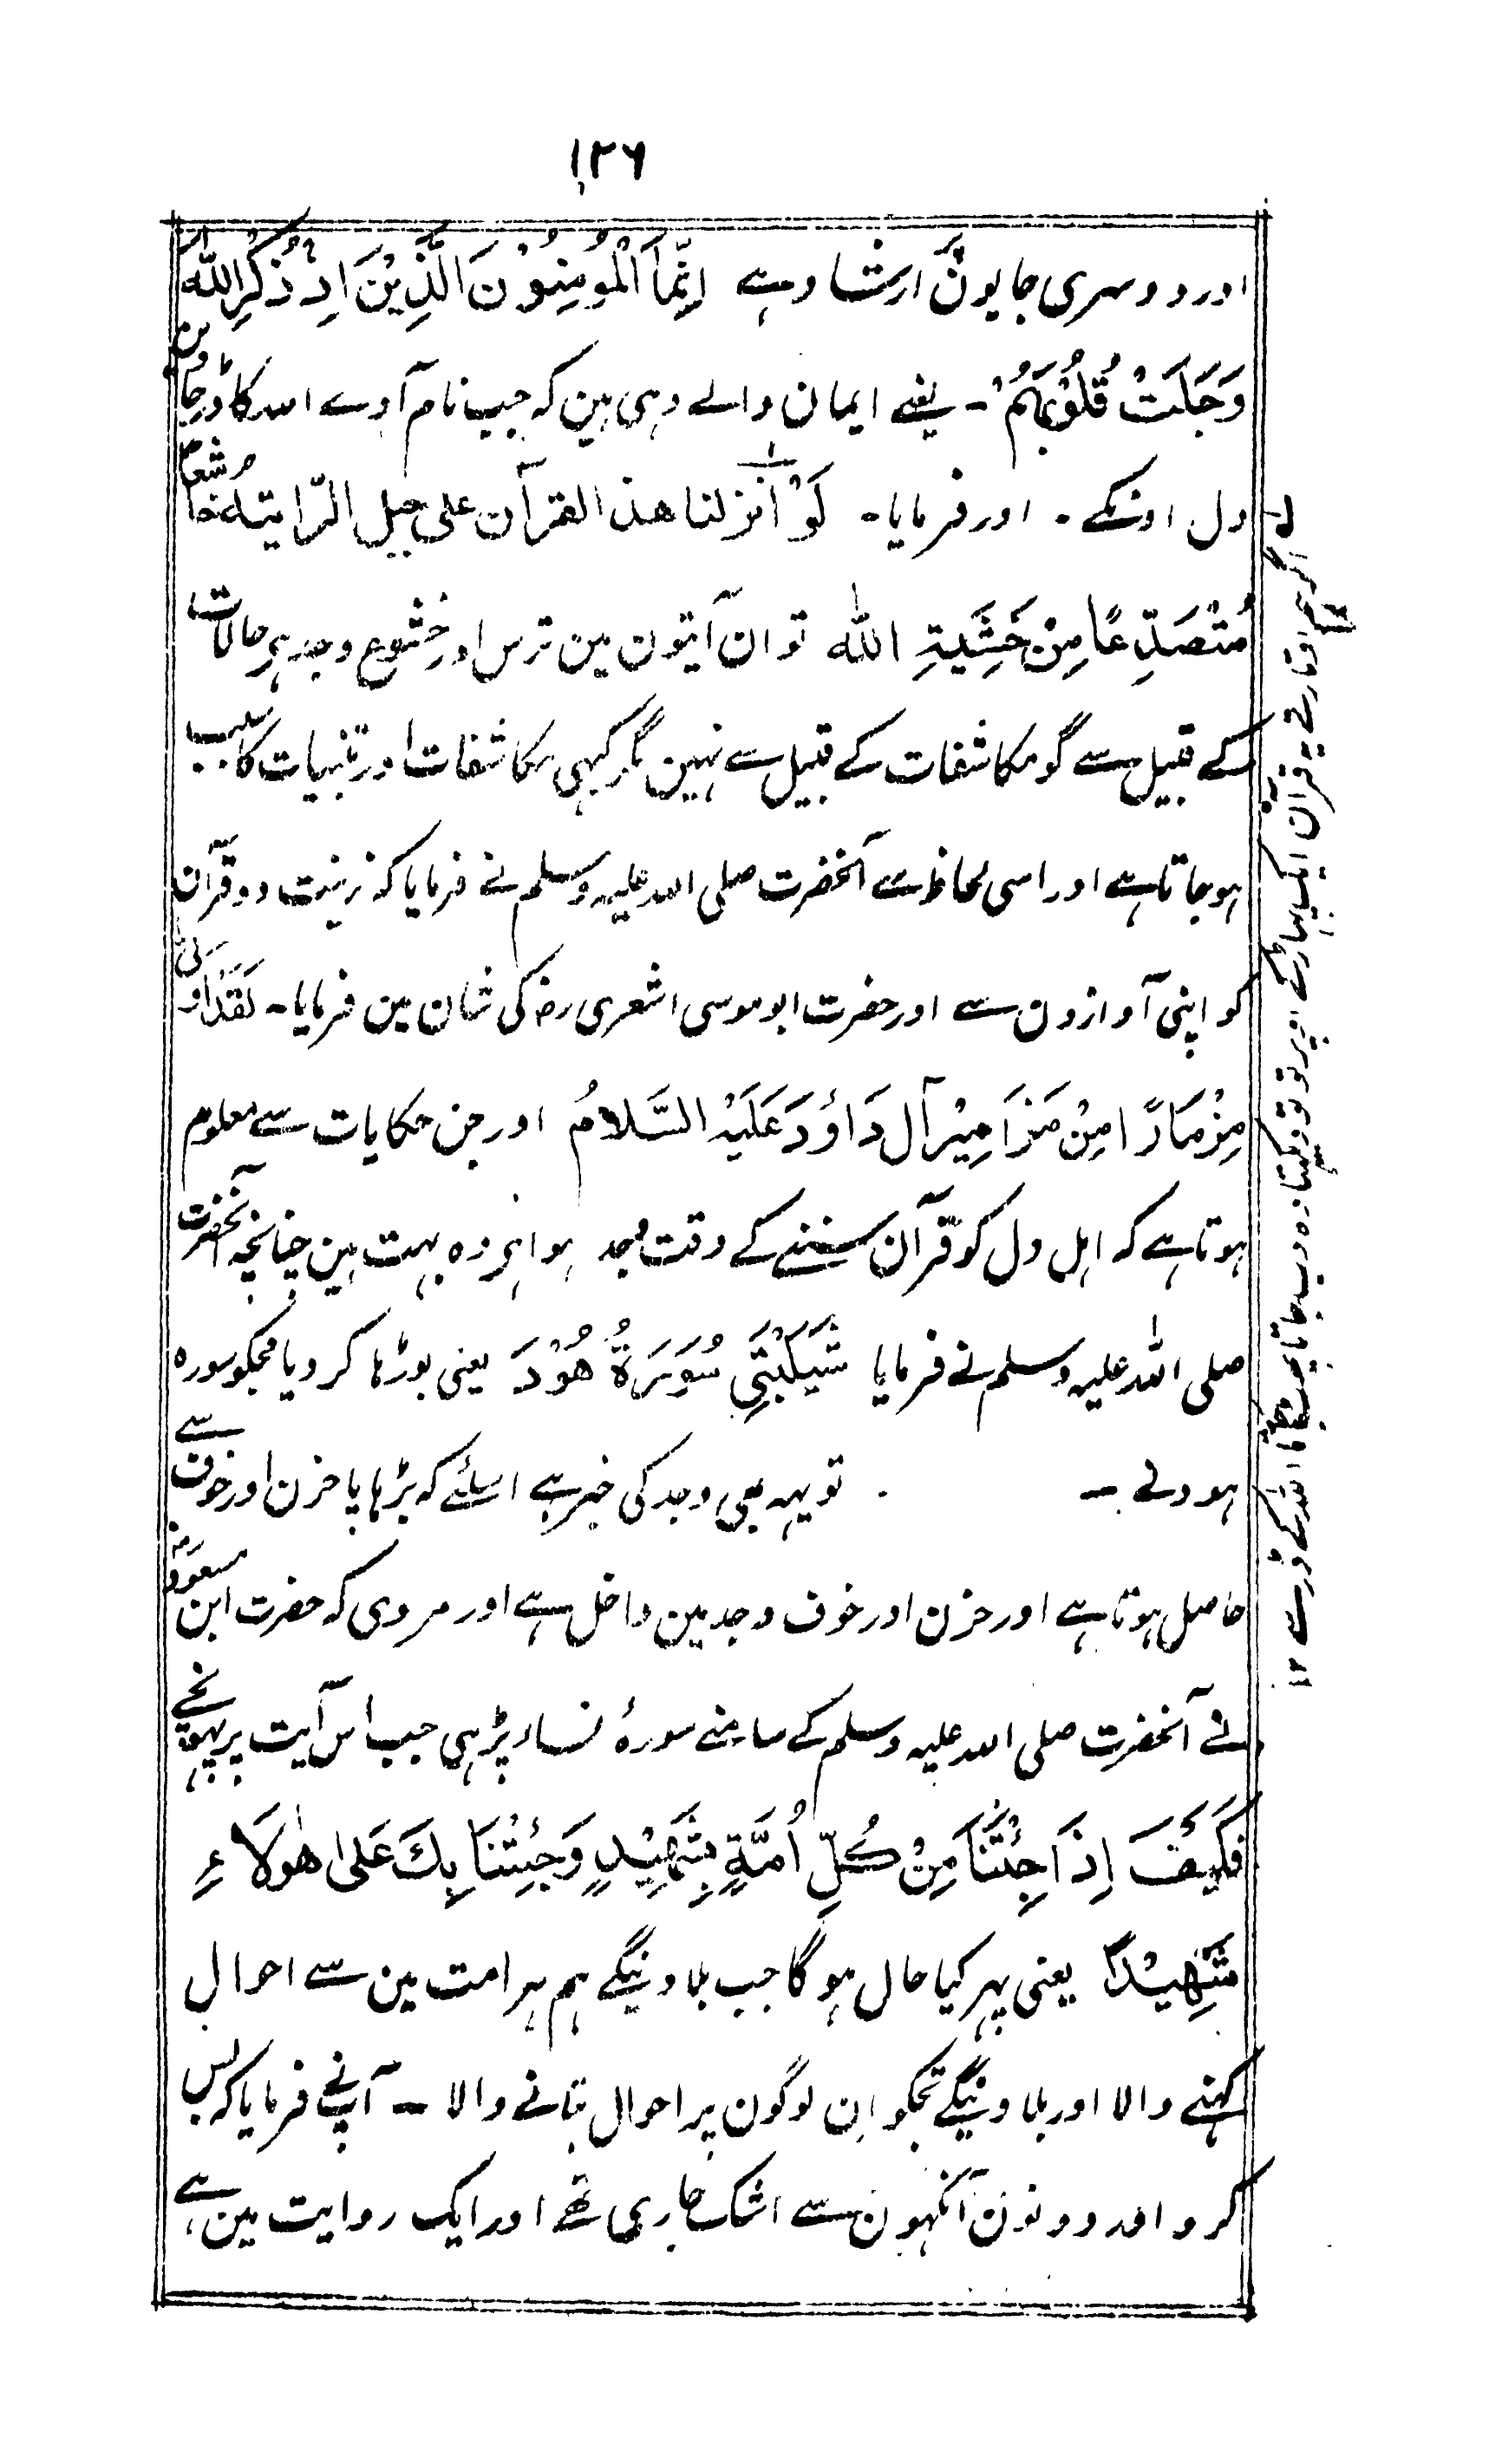 ۱۲۶
اور دوسری جا یون ارشاد ہے اِنَّمَا الْمُؤْمِنُوْنَ الَّذِیْنَ اِذَا ذُکِرَ اللّٰہُ
وَجِلَتْ قُلُوْبُهُمْ - یعنے ایمان والے وہی ہین کہ جب نام آوے اللہ کا ڈر جاوین
دل اونکے - اور فرمایا - لَوْ اَنْزلنا هذا القرآن علی جبل الرّایتہ خاشعًا
مُتَصَدِّعًا مِنْ خَشِیَۃِ اللّٰہ تو ان آیتون مین ترس اور خشوع وجد ہی حالات
کے قبیل سے گو مکاشفات کے قبیل سے نہین مگر کبہی مکاشفات اور تنبیہات کا سبب
ہو جاتا ہے اور اسی لحاظ سے آنحضرت صلی اللہ علیہ وسلم نے فرمایا کہ زینت دو قرآن
کو اپنی آوازون سے اور حضرت ابو موسی اشعری رضہ کی شان مین فرمایا - لَقَدْ اُوْتِیَ
مِزْمَارًا مِنْ مَزَامِیْر آل دَاوٗدَ عَلَیْہِ السَّلَامُ اور جن حکایات سے معلوم
ہوتا ہے کہ اہل دل کو قرآن سننے کے وقت وجد ہوا ہی وہ بہت ہین چنانچہ آنحضرت
صلی اللہ علیہ وسلم نے فرمایا شَیَّبَتْنِی سُوْرَۃُ هُوْدَ یعنی بوڑہا کر دیا مجکو سورہ
ہود نے - تو یہہ بہی وجد کی خبر ہے اسلئے کہ بڑہاپا حزن اور خوف سے
حاصل ہوتا ہے اور حزن اور خوف وجد مین داخل ہے اور مروی کہ حضرت ابن مسعود رضہ
نے آنحضرت صلی اللہ علیہ وسلم کے سامنے سورۂ نساء پڑہی جب اس آیت پر پہونچے
فَکَیْفَ اِذَا جِئْنَا مِنْ کُلِّ اُمَّۃٍ بِشَهِیْدٍ وَجِئْنَا بِكَ عَلیٰ هٰؤلَاءِ
شَهِیْدًا یعنی پہر کیا حال ہو گا جب بلاوینگے ہم ہر امت مین سے احوال
کہنے والا اور بلاوینگے تجکو ان لوگون پر احوال بتانے والا - آپنے فرمایا کہ بس
کرو اور دونون آنکہون سے اشک جاری تھے اور ایک روایت مین ہے
ل
اگر ہم اوتارتے یہ قرآن ایک پہاڑ کے اوپر تو تو دیکہتا وہ دب جاتا پھٹ جاتا اللہ کے ڈر سے ۱۲